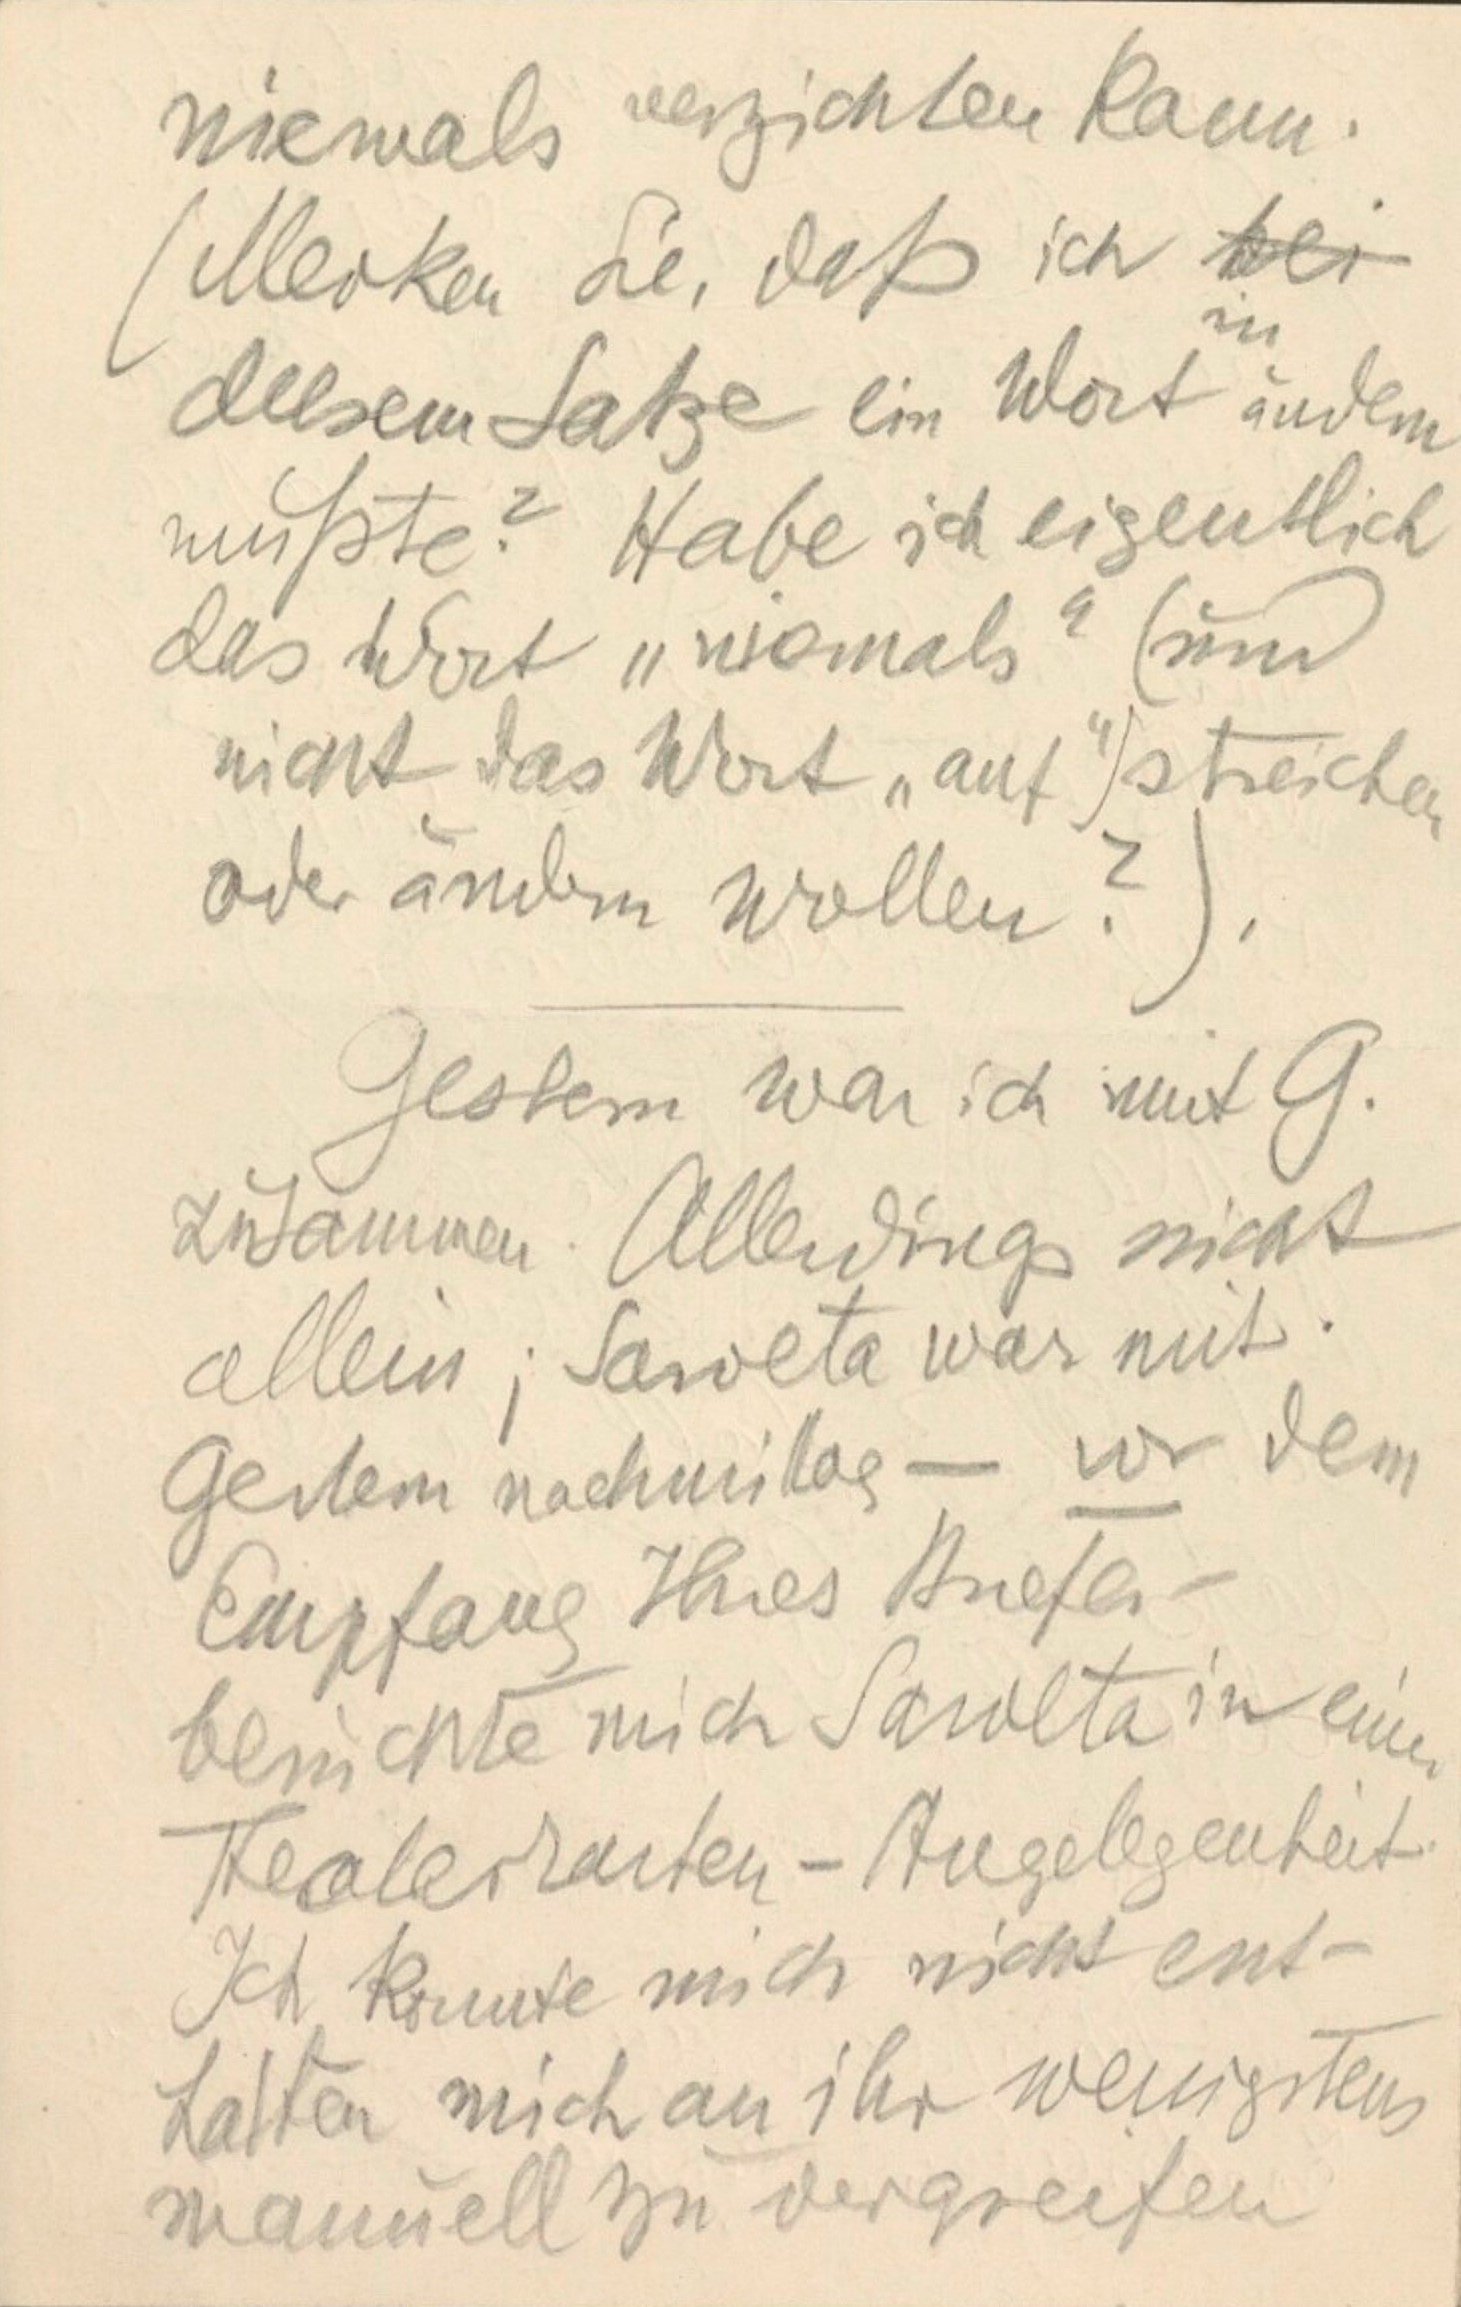 niemals verzichten kann.
(Merken Sie, daß ich bei
in
diesem Satze ein Wort ändern
mußte? Habe ich eigentlich
das Wort „niemals“ (und
nicht das Wort „auf“) streichen
oder ändern wollen?).
Gestern war ich mit G.
zusammen. Allerdings nicht
allein; Sarolta war mit.
Gestern nachmittag — vor dem
Empfang Ihres Briefes –
besuchte mich Sarolta in einer
Theaterkarten-Angelegenheit.
Ich konnte mich nicht ent-
halten mich an ihr wenigstens
manuell zu vergreifen